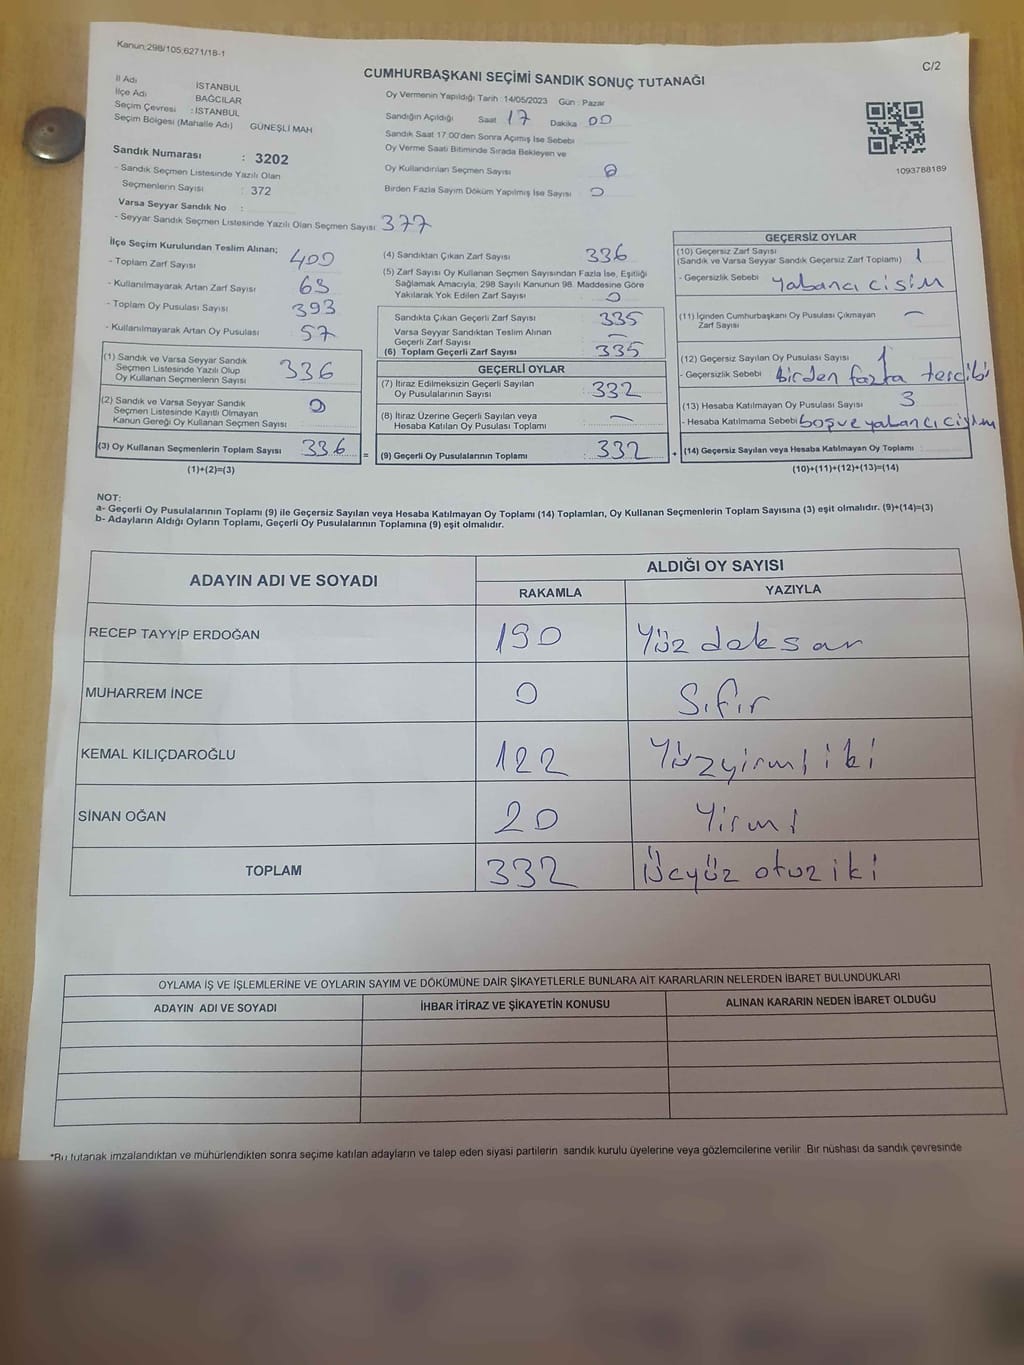 Kanun;298/105,6271/18-1
C/2
CUMHURBAŞKANI SEÇİMİ SANDIK SONUÇ TUTANAĞI
İl Adı İSTANBUL
İlçe Adı BAĞCILAR
Seçim Çevresi : İSTANBUL
Seçim Bölgesi (Mahalle Adı) GÜNEŞLİ MAH
Oy Vermenin Yapıldığı Tarih : 14/05/2023 Gün : Pazar
Sandığın Açıldığı Saat 17 Dakika 00
Sandık Saat 17:00'den Sonra Açımış İse Sebebi
Oy Verme Saati Bitiminde Sırada Bekleyen ve
Oy Kullandırılan Seçmen Sayısı 0
Birden Fazla Sayım Döküm Yapılmış İse Sayısı 0
1093788189
Sandık Numarası : 3202
- Sandık Seçmen Listesinde Yazılı Olan
Seçmenlerin Sayısı : 372
Varsa Seyyar Sandık No :
- Seyyar Sandık Seçmen Listesinde Yazılı Olan Seçmen Sayısı: 377
İlçe Seçim Kurulundan Teslim Alınan;
- Toplam Zarf Sayısı 400
- Kullanılmayarak Artan Zarf Sayısı 63
- Toplam Oy Pusulası Sayısı 393
- Kullanılmayarak Artan Oy Pusulası 57
(1) Sandık ve Varsa Seyyar Sandık
Seçmen Listesinde Yazılı Olup
Oy Kullanan Seçmenlerin Sayısı 336
(2) Sandık ve Varsa Seyyar Sandık
Seçmen Listesinde Kayıtlı Olmayan
Kanun Gereği Oy Kullanan Seçmen Sayısı 0
(3) Oy Kullanan Seçmenlerin Toplam Sayısı 336
(1)+(2)=(3)
(4) Sandıktan Çıkan Zarf Sayısı 336
(5) Zarf Sayısı Oy Kullanan Seçmen Sayısından Fazla İse, Eşitliği
Sağlamak Amacıyla, 298 Sayılı Kanunun 98. Maddesine Göre
Yakılarak Yok Edilen Zarf Sayısı 0
Sandıkta Çıkan Geçerli Zarf Sayısı 335
Varsa Seyyar Sandıktan Teslim Alınan
Geçerli Zarf Sayısı —
(6) Toplam Geçerli Zarf Sayısı 335
GEÇERLİ OYLAR
(7) İtiraz Edilmeksizin Geçerli Sayılan
Oy Pusulalarının Sayısı 332
(8) İtiraz Üzerine Geçerli Sayılan veya
Hesaba Katılan Oy Pusulası Toplamı —
= (9) Geçerli Oy Pusulalarının Toplamı : 332
GEÇERSİZ OYLAR
(10) Geçersiz Zarf Sayısı
(Sandık ve Varsa Seyyar Sandık Geçersiz Zarf Toplamı) 1
- Geçersizlik Sebebi yabancı cisim
(11) İçinden Cumhurbaşkanı Oy Pusulası Çıkmayan
Zarf Sayısı —
(12) Geçersiz Sayılan Oy Pusulası Sayısı 1
- Geçersizlik Sebebi birden fazla tercihi
(13) Hesaba Katılmayan Oy Pusulası Sayısı 3
- Hesaba Katılmama Sebebi boş ve yabancı cisim
+ (14) Geçersiz Sayılan veya Hesaba Katılmayan Oy Toplamı :
(10)+(11)+(12)+(13)=(14)
NOT:
a- Geçerli Oy Pusulalarının Toplamı (9) ile Geçersiz Sayılan veya Hesaba Katılmayan Oy Toplamı (14) Toplamları, Oy Kullanan Seçmenlerin Toplam Sayısına (3) eşit olmalıdır. (9)+(14)=(3)
b- Adayların Aldığı Oyların Toplamı, Geçerli Oy Pusulalarının Toplamına (9) eşit olmalıdır.
ADAYIN ADI VE SOYADI ALDIĞI OY SAYISI
RAKAMLA YAZIYLA
RECEP TAYYİP ERDOĞAN 190 Yüz doksan
MUHARREM İNCE 0 Sıfır
KEMAL KILIÇDAROĞLU 122 Yüzyirmi iki
SİNAN OĞAN 20 Yirmi
TOPLAM 332 Üçyüz otuz iki
OYLAMA İŞ VE İŞLEMLERİNE VE OYLARIN SAYIM VE DÖKÜMÜNE DAİR ŞİKAYETLERLE BUNLARA AİT KARARLARIN NELERDEN İBARET BULUNDUKLARI
ADAYIN ADI VE SOYADI İHBAR İTİRAZ VE ŞİKAYETİN KONUSU ALINAN KARARIN NEDEN İBARET OLDUĞU
*Bu tutanak imzalandıktan ve mühürlendikten sonra seçime katılan adayların ve talep eden siyasi partilerin sandık kurulu üyelerine veya gözlemcilerine verilir .Bir nüshası da sandık çevresinde